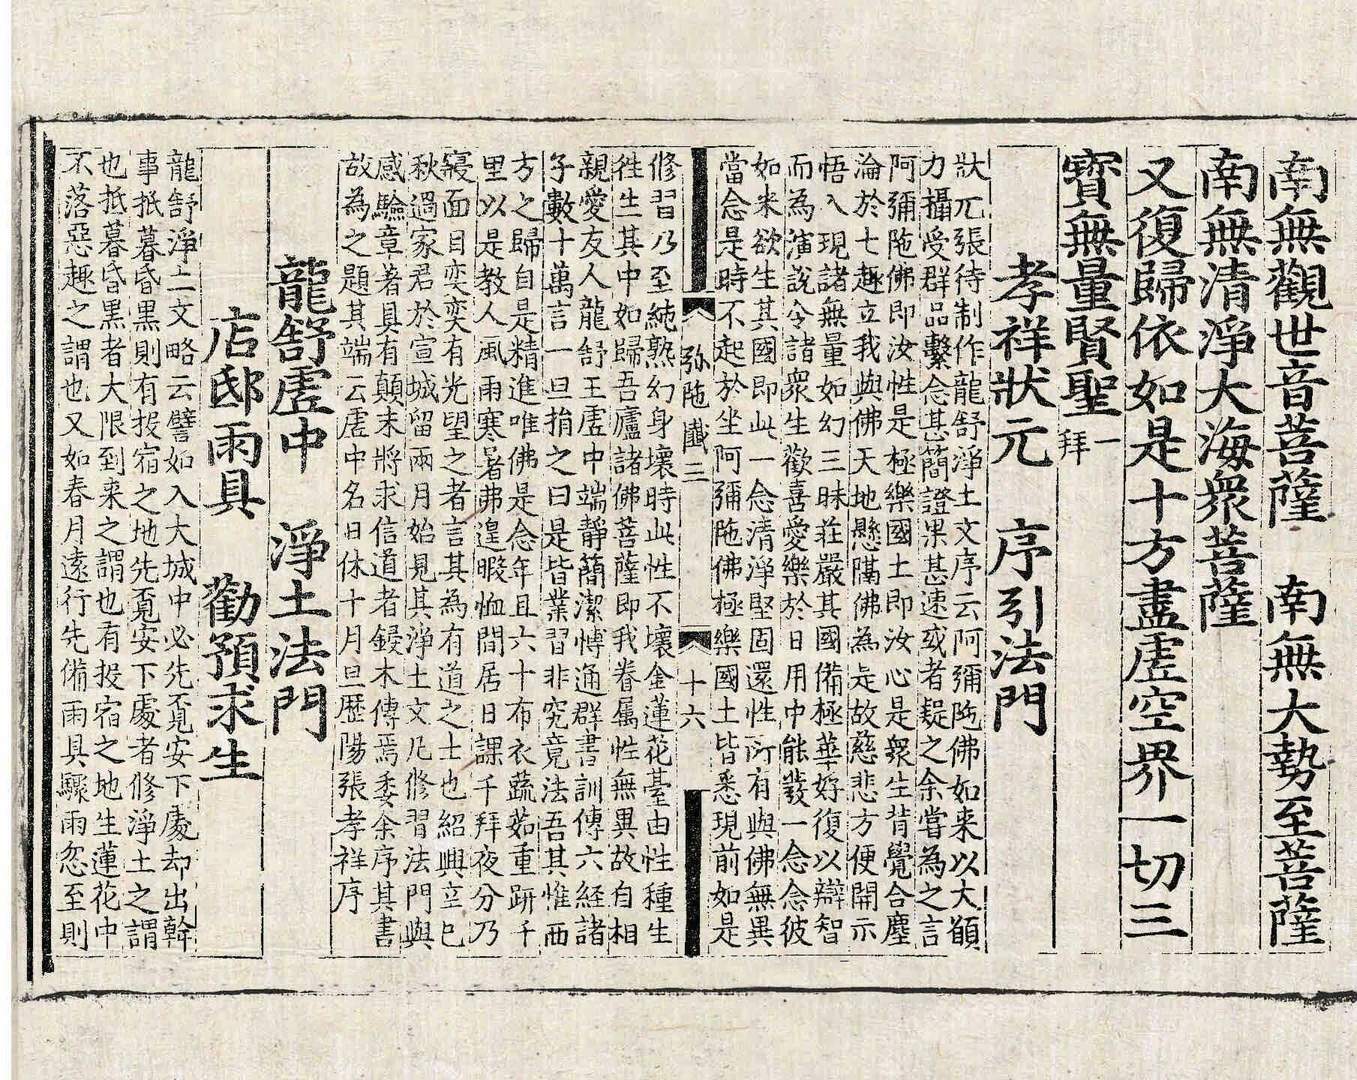 南無觀世音菩薩　南無大勢至菩薩
南無清淨大海衆菩薩
又復歸依如是十方盡虛空界一切三
寶無量賢聖一拜
孝祥狀元　序引法門
狀元張待制作龍舒淨土文序云阿彌陁佛如来以大願
力攝受群品繫念甚簡證果甚速或者疑之余嘗為之言
阿彌陁佛即汝性是極樂國土即汝心是衆生背覺合塵
淪於七趣立我與佛天地懸隔佛為是故慈悲方便開示
悟入現諸無量如幻三昧莊嚴其國備極華好復以辯智
而為演說令諸衆生歡喜愛樂於日用中能發一念念彼
如来欲生其國即此一念清淨堅固還性所有與佛無異
當念是時不起於坐阿彌陁佛極樂國土皆悉現前如是
弥陁 三　十六
修習乃至純熟幻身壞時此性不壞金蓮花臺由性種生
徃生其中如歸吾廬諸佛菩薩即我眷屬性無異故自相
親愛友人龍舒王虛中端靜簡潔愽通群書訓傳六經諸
子數十萬言一旦捐之曰是皆業習非究竟法吾其惟西
方之歸自是精進唯佛是念年且六十布衣蔬茹重趼千
里以是教人風雨寒暑弗遑暇恤間居日課千拜夜分乃
寢面目奕奕有光望之者言其為有道之士也紹興辛巳
秋過家君於宣城留兩月始見其淨土文凡修習法門與
感驗章著具有顛末將求信道者鋟木傳焉委余序其書
故為之題其端云虛中名日休十月旦歷陽張孝祥序
龍舒虛中　淨土法門
店邸雨具　勸預求生
龍舒淨土文略云譬如入大城中必先覓安下處却出幹
事抵暮昏黑則有投宿之地先覓安下處者修淨土之謂
也抵暮昏黑者大限到来之謂也有投宿之地生蓮花中
不落惡趣之謂也又如春月遠行先備雨具驟雨忽至則